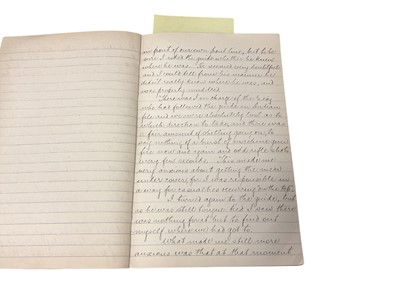 our front of advance front line, but to be
sure I asked the guide whether he knew
where he was. He seemed very doubtful
and I could tell from his manner he
didn't really know where he was, and
was properly muddled.
There was I in charge of the
who had followed the guide in
and we were absolutely lost as to
which direction to take, and there was
a fair amount of shelling going on, to
say nothing of a burst of machine gun
fire now and again and odd rifle shots
every few seconds. This made me
very anxious about getting the men
under cover, for I was responsible in
a way for casualties occurring on the
I turned again to the guide, but
as he was still tongue tied I saw there
was nothing for it but to find out
myself where we had got to.
What made me still more
anxious was that at that moment